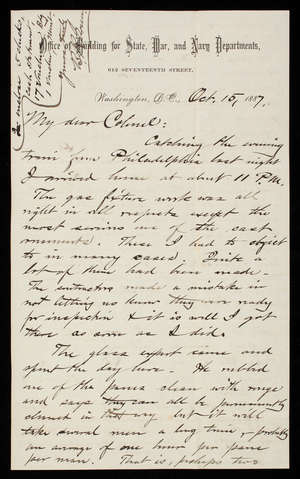 Office of Building for State, War, and Navy Departments,
612 SEVENTEENTH STREET,
Washington, D.C., Oct. 15, 1887.
My dear Colonel:
Catching the evening
train from Philadelphia last night
I arrived home at about 11 P.M.
The gas fixture work was all
right in all respects except the
most serious one of the cast
ornaments. These I had to object
to in many cases. Quite a
lot of these had been made.
The contractors made a mistake in
not letting us know they were ready
for inspection & it is well I got
there as soon as I did.
The glass expert came and
spent the day here. He rubbed
one of the panes clean with rouge
and says they can all be permanently
cleaned in that way but it will
take several men a long time, & probably
an average of one hour per pane
per man. That is, perhaps two